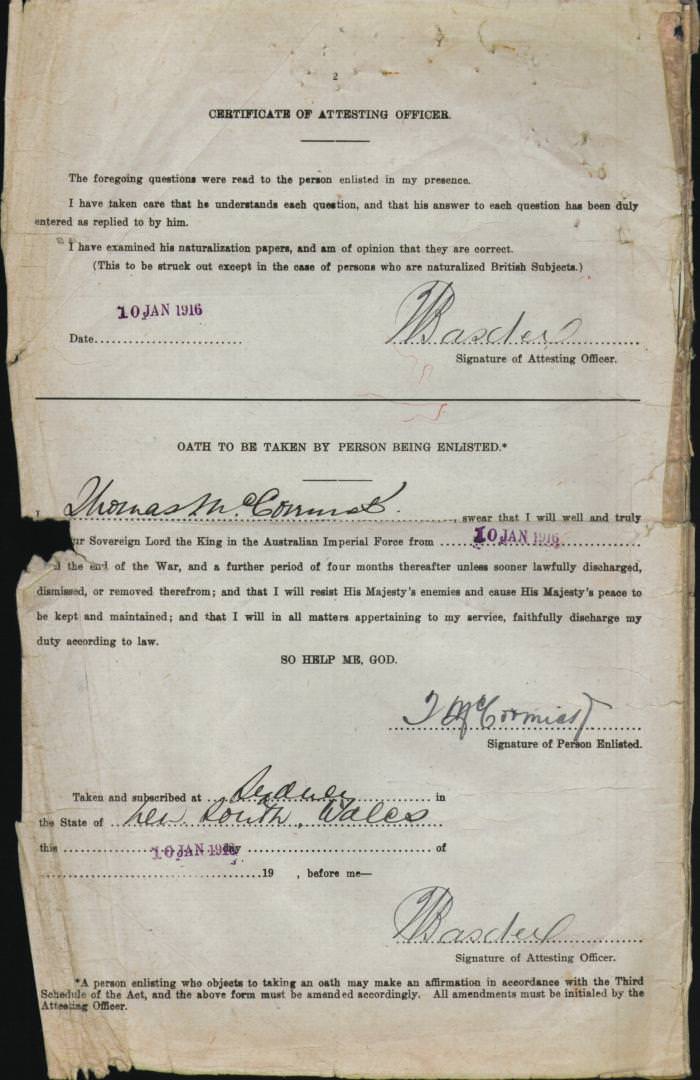 2
CERTIFICATE OF ATTESTING OFFICER.
The foregoing questions were read to the person enlisted in my presence.
I have taken care that he understands each question, and that his answer to each question has been duly
entered as replied to by him.
I have examined his naturalization papers, and am of opinion that they are correct.
(This to be struck out except in the case of persons who are naturalized British Subjects.)
10 JAN 1916
Date
Signature of Attesting Officer.
OATH TO BE TAKEN BY PERSON BEING ENLISTED.*
I Thomas McCormick, swear that I will well and truly
ur Sovereign Lord the King in the Australian Imperial Force from 10 JAN 1916
the end of the War, and a further period of four months thereafter unless sooner lawfully discharged,
dismissed, or removed therefrom; and that I will resist His Majesty's enemies and cause His Majesty's peace to
be kept and maintained; and that I will in all matters appertaining to my service, faithfully discharge my
duty according to law.
SO HELP ME, GOD.
T McCormick
Signature of Person Enlisted.
Taken and subscribed at Sydney in
the State of New South Wales
this 10 JAN 1916 day of
19 , before me—
Signature of Attesting Officer.
*A person enlisting who objects to taking an oath may make an affirmation in accordance with the Third
Schedule of the Act, and the above form must be amended accordingly. All amendments must be initialed by the
Attesting Officer.